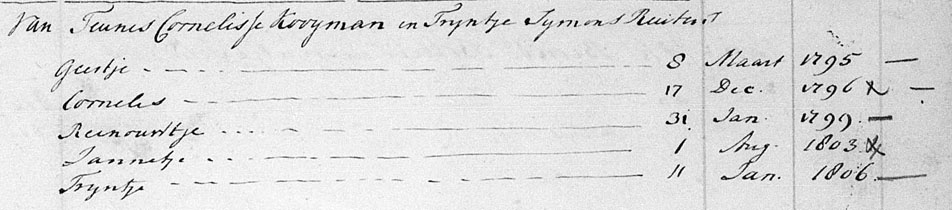 Van Teunes Cornelisse Kooyman en Tryntje Symons Reuter
Geertje 8 Maart 1795 —
Cornelis 17 Dec. 1796 x —
Reinouwtje 31 Jan. 1799. —
Jannetje 1 Aug. 1803 x
Tryntje 11 Jan. 1806. —